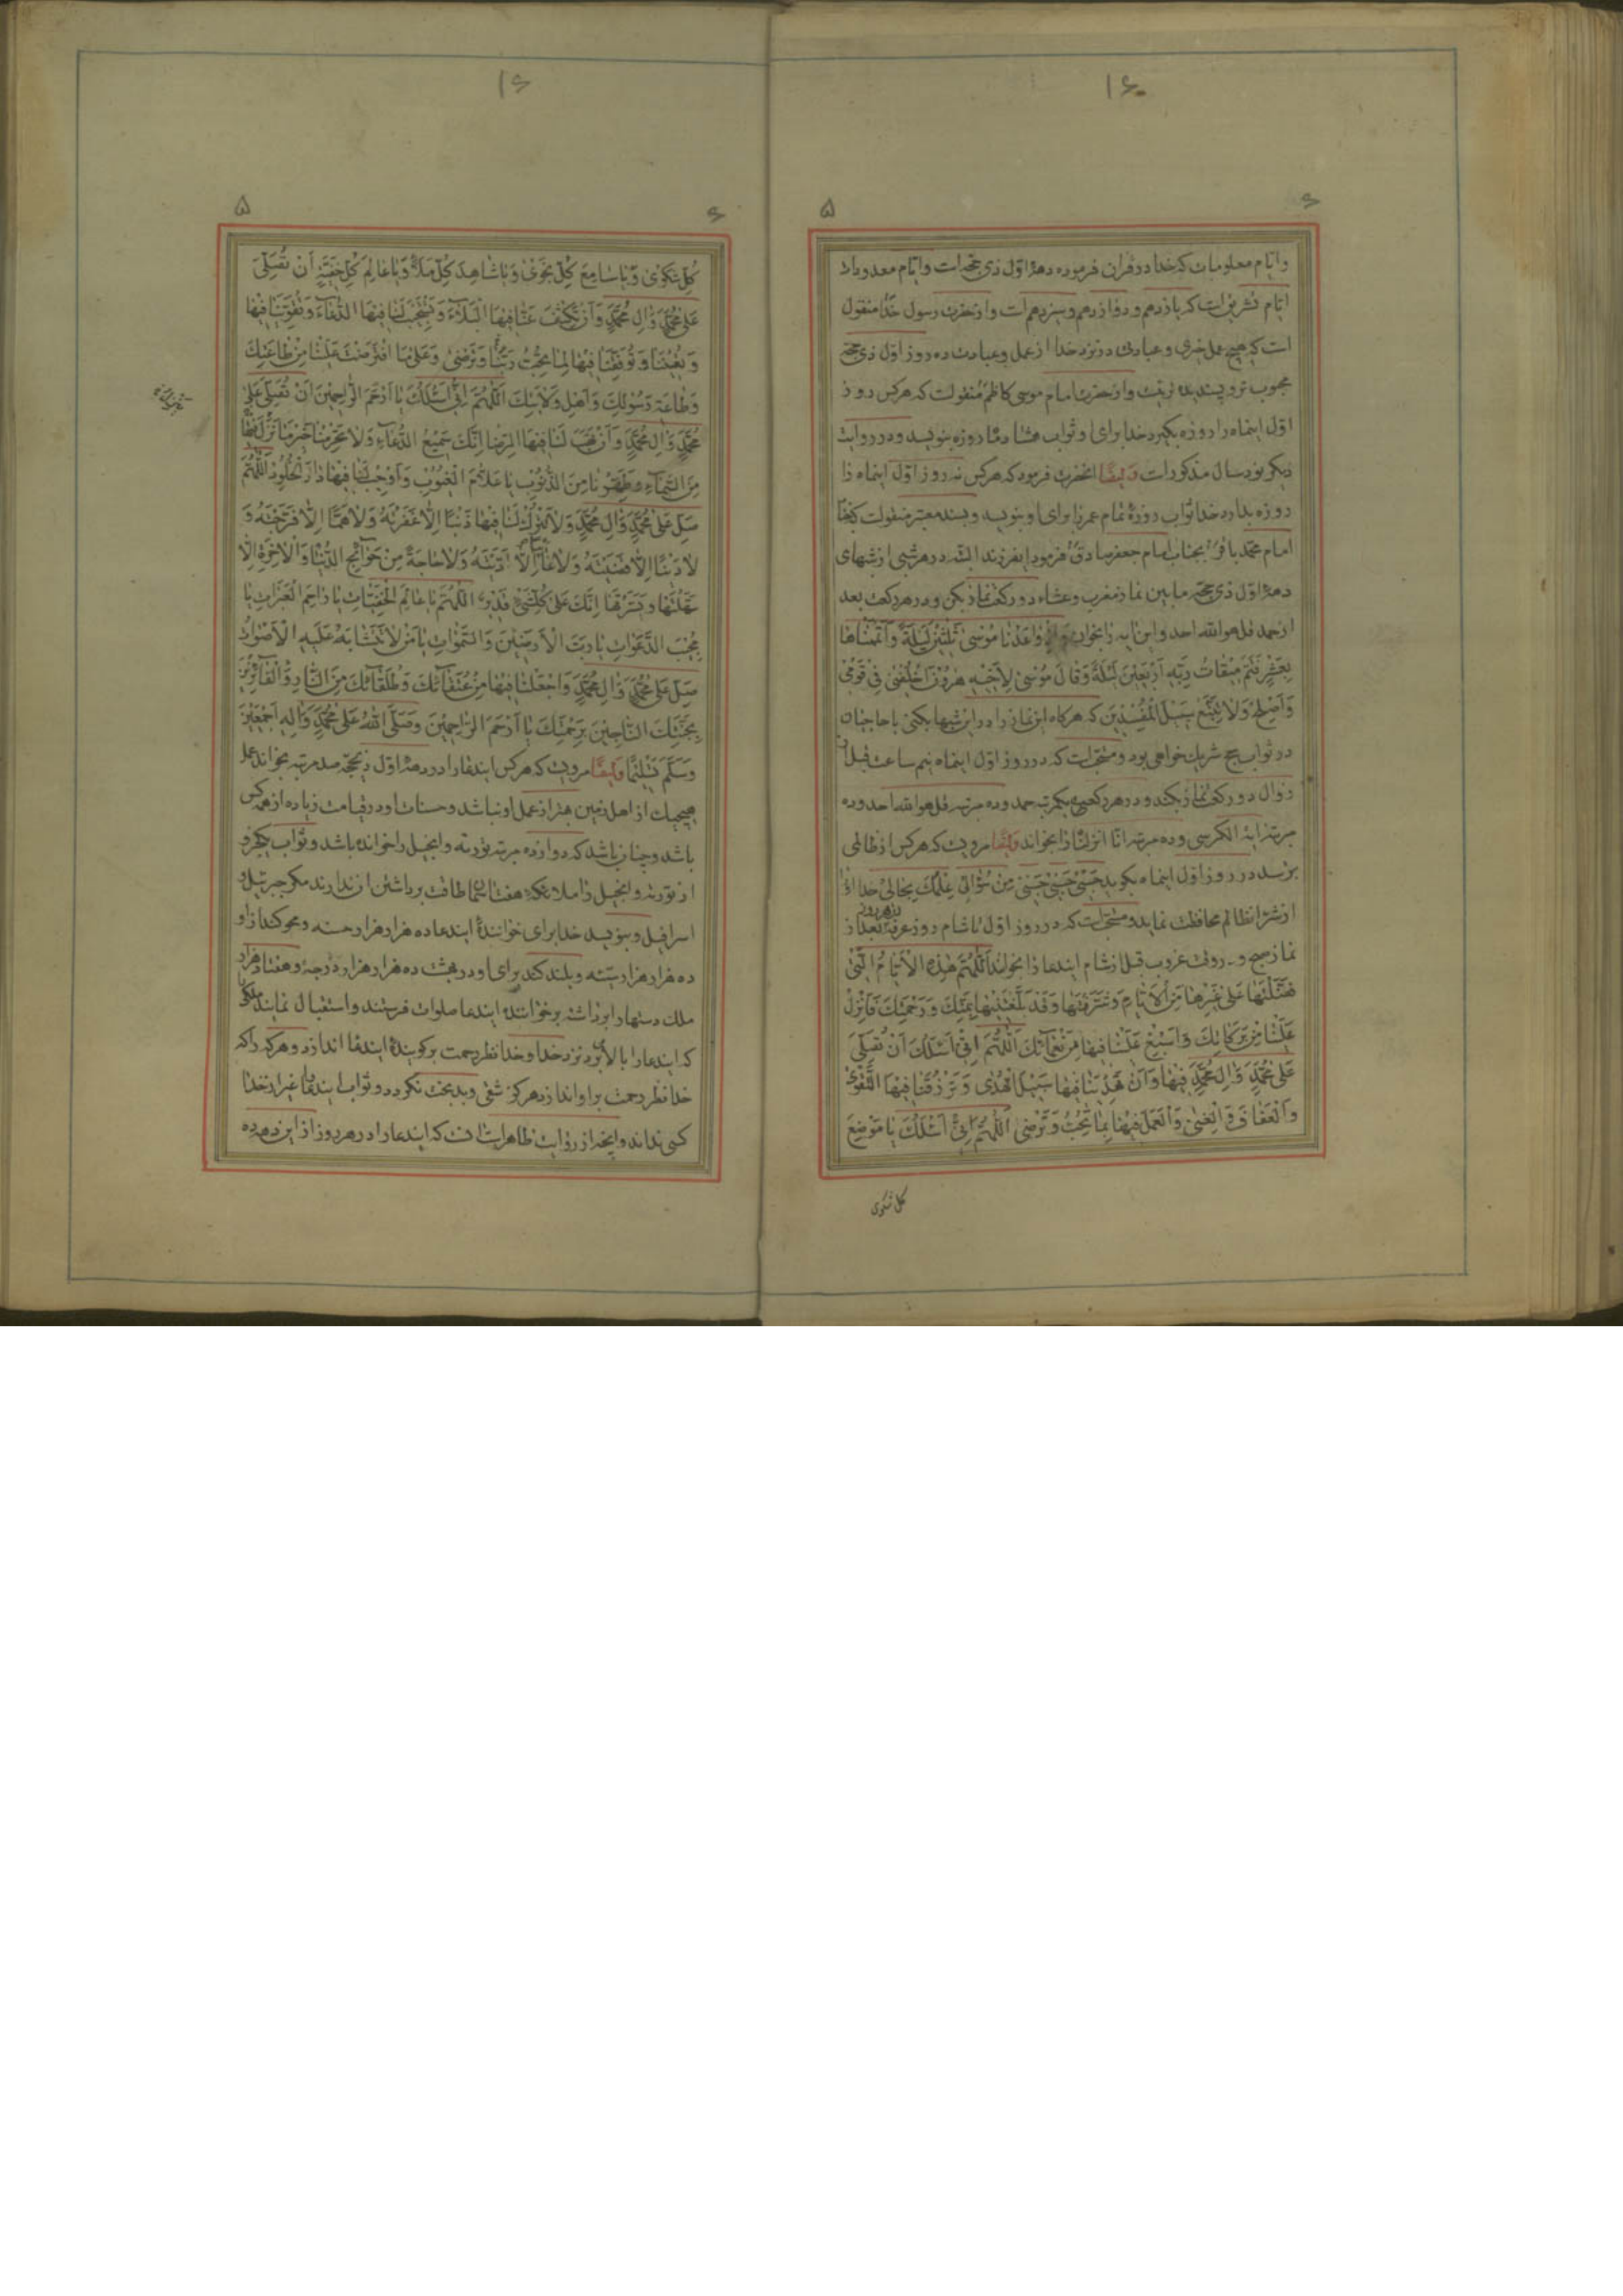 ۱۶۰
۶
۵
و ایام معلومات که خدا در قران فرموده دههٔ اول ذی حجه است و ایام معدودات
ایام تشریق است که یازدهم و دوازدهم و سیزدهم است و از حضرت رسول خدا منقول
است که هیچ عمل خیری و عبادتی در نزد خدا از عمل و عبادت ده روز اول ذی حجه
محبوب تر و پسندیده تر نیست و از حضرت امام موسی کاظم منقولست که هرکس روز
اول اینماه را روزه بگیرد خدا برای او ثواب هشتاد ماه روزه بنویسد و در روایت
دیگر نود سال مذکور است و ایضا انحضرت فرمود که هرکس نه روز اول اینماه را
روزه بدارد خدا ثواب روزهٔ تمام عمر را برای او بنویسد و بسند معتبر منقولست که
امام محمد باقر بجناب امام جعفر صادق فرمود ایفرزند البته در هر شبی از شبهای
دههٔ اول ذی حجه ما بین نماز مغرب و عشاء دو رکعت نماز بکن و در هر رکعت بعد
از حمد قل هو الله احد و این ایه را بخوان وَ وٰاعَدْنٰا مُوسىٰ ثَلٰثينَ لَيْلَةً وَأَتْمَمْنٰاهٰا
بِعَشْرٍ فَتَمَّ مِيقٰاتُ رَبِّهِ أَرْبَعِينَ لَيْلَةً وَقٰالَ مُوسىٰ لِأَخِيهِ هٰرُونَ اخْلُفْنِي فِي قَوْمِي
وَأَصْلِحْ وَلٰا تَتَّبِعْ سَبِيلَ الْمُفْسِدِينَ که هرکاه این نماز را در این شبها بکنی با حاجیان
در ثواب حج شریک خواهی بود و مستحب است که در روز اول اینماه نیم ساعت قبل از
زوال دو رکعت نماز بکند و در هر رکعتی یکمرتبه حمد و ده مرتبه قل هو الله احد و ده
مرتبه ایة الکرسی و ده مرتبه انا انزلناه را بخواند و ایضا مرویست که هرکس از ظالمی
بترسد در روز اول اینماه بکوید حَسْبِي حَسْبِي حَسْبِي مِنْ سُؤٰالِي عِلْمُكَ بِحٰالِي خدا او را
از شر انظالم محافظت نماید و مستحب است که در روز اول تا شام روز عرفه هر روز بعد از
نماز صبح و در وقت غروب قبل از شام ایندعا را بخواند اَللّٰهُمَّ هٰذِهِ الْأَيّٰامُ الَّتِي
فَضَّلْتَهٰا عَلىٰ غَيْرِهٰا مِنَ الْأَيّٰامِ وَشَرَّفْتَهٰا وَقَدْ بَلَّغْتَنِيهٰا بِمَنِّكَ وَرَحْمَتِكَ فَأَنْزِلْ
عَلَيْنٰا مِنْ بَرَكٰاتِكَ وَأَسْبِغْ عَلَيْنٰا فِيهٰا مِنْ نَعْمٰآئِكَ اَللّٰهُمَّ إِنِّي أَسْئَلُكَ أَنْ تُصَلِّيَ
عَلىٰ مُحَمَّدٍ وَآلِ مُحَمَّدٍ فِيهٰا وَأَنْ تَهْدِيَنٰا فِيهٰا سَبِيلَ الْهُدىٰ وَتَرْزُقَنٰا فِيهَا التَّقْوىٰ
وَالْعَفٰافَ وَالْغِنىٰ وَالْعَمَلَ فِيهٰا بِمٰا تُحِبُّ وَتَرْضىٰ اَللّٰهُمَّ إِنِّي أَسْئَلُكَ يٰا مَوْضِعَ
کل شکوی
۱۶
۶
۵
كُلِّ شَكْوىٰ وَيٰا سٰامِعَ كُلِّ نَجْوىٰ وَيٰا شٰاهِدَ كُلِّ مَلَأٍ وَيٰا عٰالِمَ كُلِّ خَفِيَّةٍ أَنْ تُصَلِّيَ
عَلىٰ مُحَمَّدٍ وَآلِ مُحَمَّدٍ وَأَنْ تَكْشِفَ عَنّٰا فِيهَا الْبَلٰآءَ وَتَسْتَجِيبَ لَنٰا فِيهَا الدُّعٰآءَ وَتُقَوِّيَنٰا فِيهٰا
وَتُعِينَنٰا وَتُوَفِّقَنٰا فِيهٰا لِمٰا تُحِبُّ رَبَّنٰا وَتَرْضىٰ وَعَلىٰ مَا افْتَرَضْتَ عَلَيْنٰا مِنْ طٰاعَتِكَ
وَطٰاعَةِ رَسُولِكَ وَأَهْلِ وَلٰايَتِكَ اَللّٰهُمَّ إِنِّي أَسْئَلُكَ يٰا أَرْحَمَ الرّٰاحِمِينَ أَنْ تُصَلِّيَ عَلىٰ
مُحَمَّدٍ وَآلِ مُحَمَّدٍ وَأَنْ تَهَبَ لَنٰا فِيهَا الرِّضٰا إِنَّكَ سَمِيعُ الدُّعٰآءِ وَلٰا تَحْرِمْنٰا خَيْرَ مٰا تُنْزِلُ فِيهٰا
مِنَ السَّمٰآءِ وَطَهِّرْنٰا مِنَ الذُّنُوبِ يٰا عَلّٰامَ الْغُيُوبِ وَأَوْجِبْ لَنٰا فِيهٰا دٰارَ الْخُلُودِ اَللّٰهُمَّ
صَلِّ عَلىٰ مُحَمَّدٍ وَآلِ مُحَمَّدٍ وَلٰا تَتْرُكْ لَنٰا فِيهٰا ذَنْبًا إِلّٰا غَفَرْتَهُ وَلٰا هَمًّا إِلّٰا فَرَّجْتَهُ وَ
لٰا دَيْنًا إِلّٰا قَضَيْتَهُ وَلٰا غٰائِبًا إِلّٰا أَدَّيْتَهُ وَلٰا حٰاجَةً مِنْ حَوٰآئِجِ الدُّنْيٰا وَالْآخِرَةِ إِلّٰا
سَهَّلْتَهٰا وَيَسَّرْتَهٰا إِنَّكَ عَلىٰ كُلِّ شَيْءٍ قَدِيرٌ اَللّٰهُمَّ يٰا عٰالِمَ الْخَفِيّٰاتِ يٰا رٰاحِمَ الْعَبَرٰاتِ يٰا
مُجِيبَ الدَّعَوٰاتِ يٰا رَبَّ الْأَرَضِينَ وَالسَّمٰوٰاتِ يٰا مَنْ لٰا تَتَشٰابَهُ عَلَيْهِ الْأَصْوٰاتُ
صَلِّ عَلىٰ مُحَمَّدٍ وَآلِ مُحَمَّدٍ وَاجْعَلْنٰا فِيهٰا مِنْ عُتَقٰآئِكَ وَطُلَقٰآئِكَ مِنَ النّٰارِ وَالْفٰآئِزِينَ
بِجَنَّتِكَ النّٰاجِينَ بِرَحْمَتِكَ يٰا أَرْحَمَ الرّٰاحِمِينَ وَصَلَّى اللّٰهُ عَلىٰ مُحَمَّدٍ وَآلِهِ أَجْمَعِينَ
وَسَلَّمَ تَسْلِيمًا و ایضا مرویست که هرکس ایندعا را در دههٔ اول ذیحجه صد مرتبه بخواند عمل
هیچیک از اهل زمین بهتر از عمل او نباشد و حسنات او در قیامت زیاده از همه کس
باشد و چنان باشد که دوازده مرتبه توریة و انجیل را خوانده باشد و ثواب یکحرف
از توریة و انجیل را ملائکهٔ هفت اسمان طاقت برداشتن ان ندارند مکر جبرئیل و
اسرافیل و بنویسد خدا برای خوانندهٔ ایندعا ده هزار هزار حسنه و محو کند از او
ده هزار هزار سیّئه و بلند کند برای او در بهشت ده هزار هزار درجه و هفتاد هزار
ملک دستها را برداشته بر خوانندهٔ ایندعا صلوات فرستند و استقبال نمایند ملکی را
که ایندعا را بالا برد نزد خدا و خدا نظر رحمت بر کویندهٔ ایندعا اندازد و هرکه را که
خدا نظر رحمت بر او اندازد هرکز شقی و بدبخت نکردد و ثواب ایندعا را غیر از خدا
کسی نداند و انچه از روایت ظاهر است انست که ایندعا را در هر روز از این دهه ده